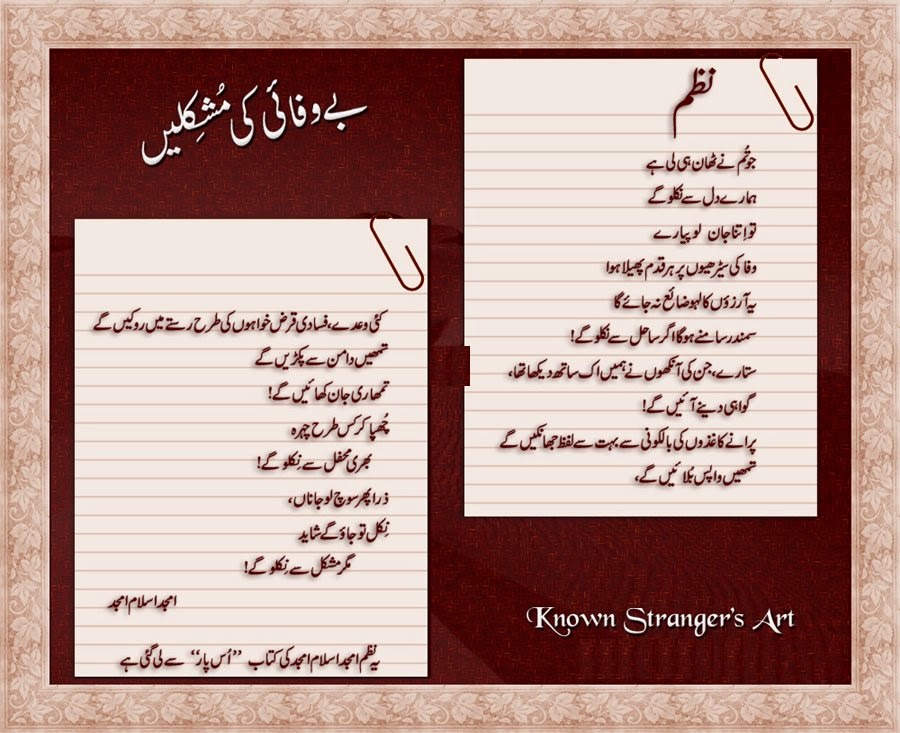 بے وفائی کی مُشکِلیں
نظم
جو تُم نے ٹھان ہی لی ہے
ہمارے دل سے نکلو گے
تو اِتنا جان لو پیارے
وفا کی سیڑھیوں پر ہر قدم پھیلا ہوا
یہ آرزؤں کا لہو ضائع نہ جائے گا
سمندر سامنے ہوگا اگر ساحل سے نکلو گے!
ستارے، جن کی آنکھوں نے ہمیں اک ساتھ دیکھا تھا،
گواہی دینے آئیں گے!
پرانے کاغذوں کی بالکونی سے بہت سے لفظ جھانکیں گے
تمھیں واپس بُلائیں گے،
کئی وعدے، فسادی قرض خواہوں کی طرح رستے میں روکیں گے
تمھیں دامن سے پکڑیں گے
تمھاری جان کھائیں گے!
چُھپا کر کس طرح چہرہ
بھری محفل سے نِکلو گے!
ذرا پھر سوچ لو جاناں،
نِکل تو جاؤ گے شاید
مگر مشکل سے نِکلو گے!
امجد اسلام امجد
یہ نظم امجد اسلام امجد کی کتاب ”اُس پار“ سے لی گئی ہے
Known Stranger's Art